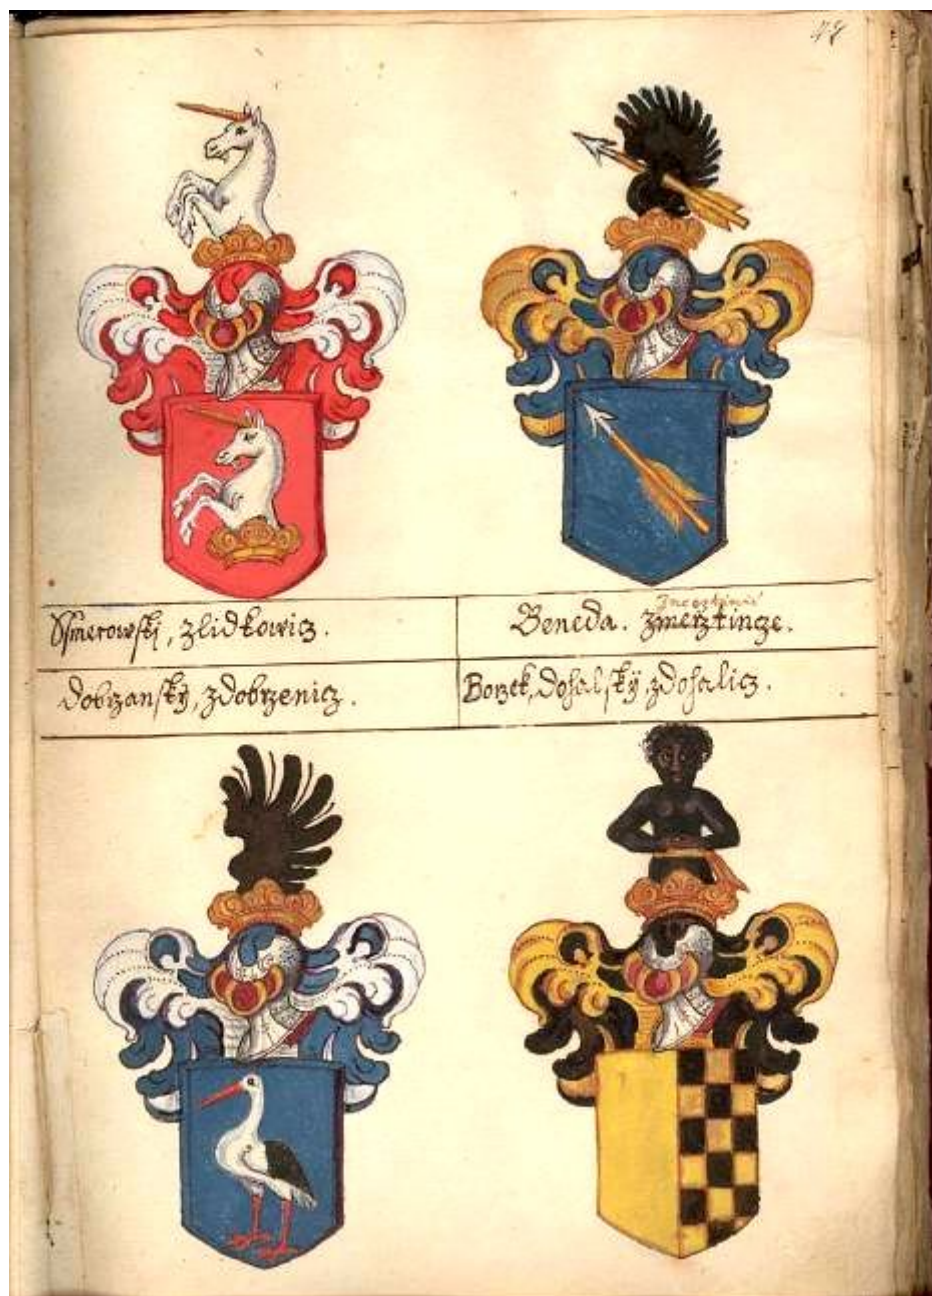 zlidkowicz.
Beneda. zmerztinge.
dobrzanský, zdobrzenicz.
Borzek, dohalský, zdohalicz.